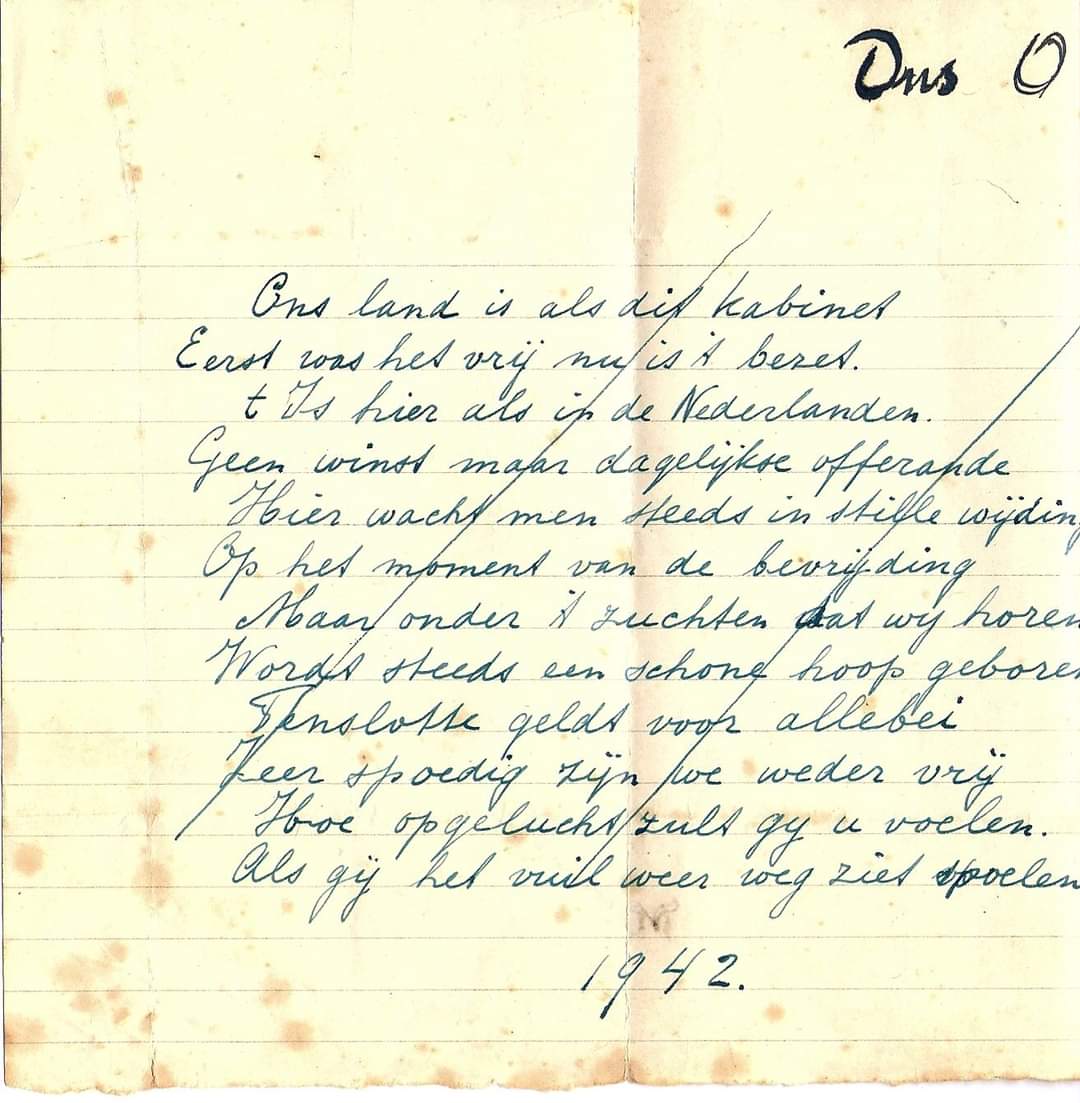 Ons O
Ons land is als dit kabinet
Eerst was het vrij nu is 't bezet.
t Is hier als in de Nederlanden.
Geen winst maar dagelijkse offerande
Hier wacht men steeds in stille wijding
Op het moment van de bevrijding
Maar onder 't zuchten dat wij horen
Wordt steeds een schone hoop geboren
Tenslotte geldt voor allebei
Zeer spoedig zijn we weder vrij
Hoe opgelucht zult gy u voelen.
Als gij het vuil weer weg ziet spoelen
1942.